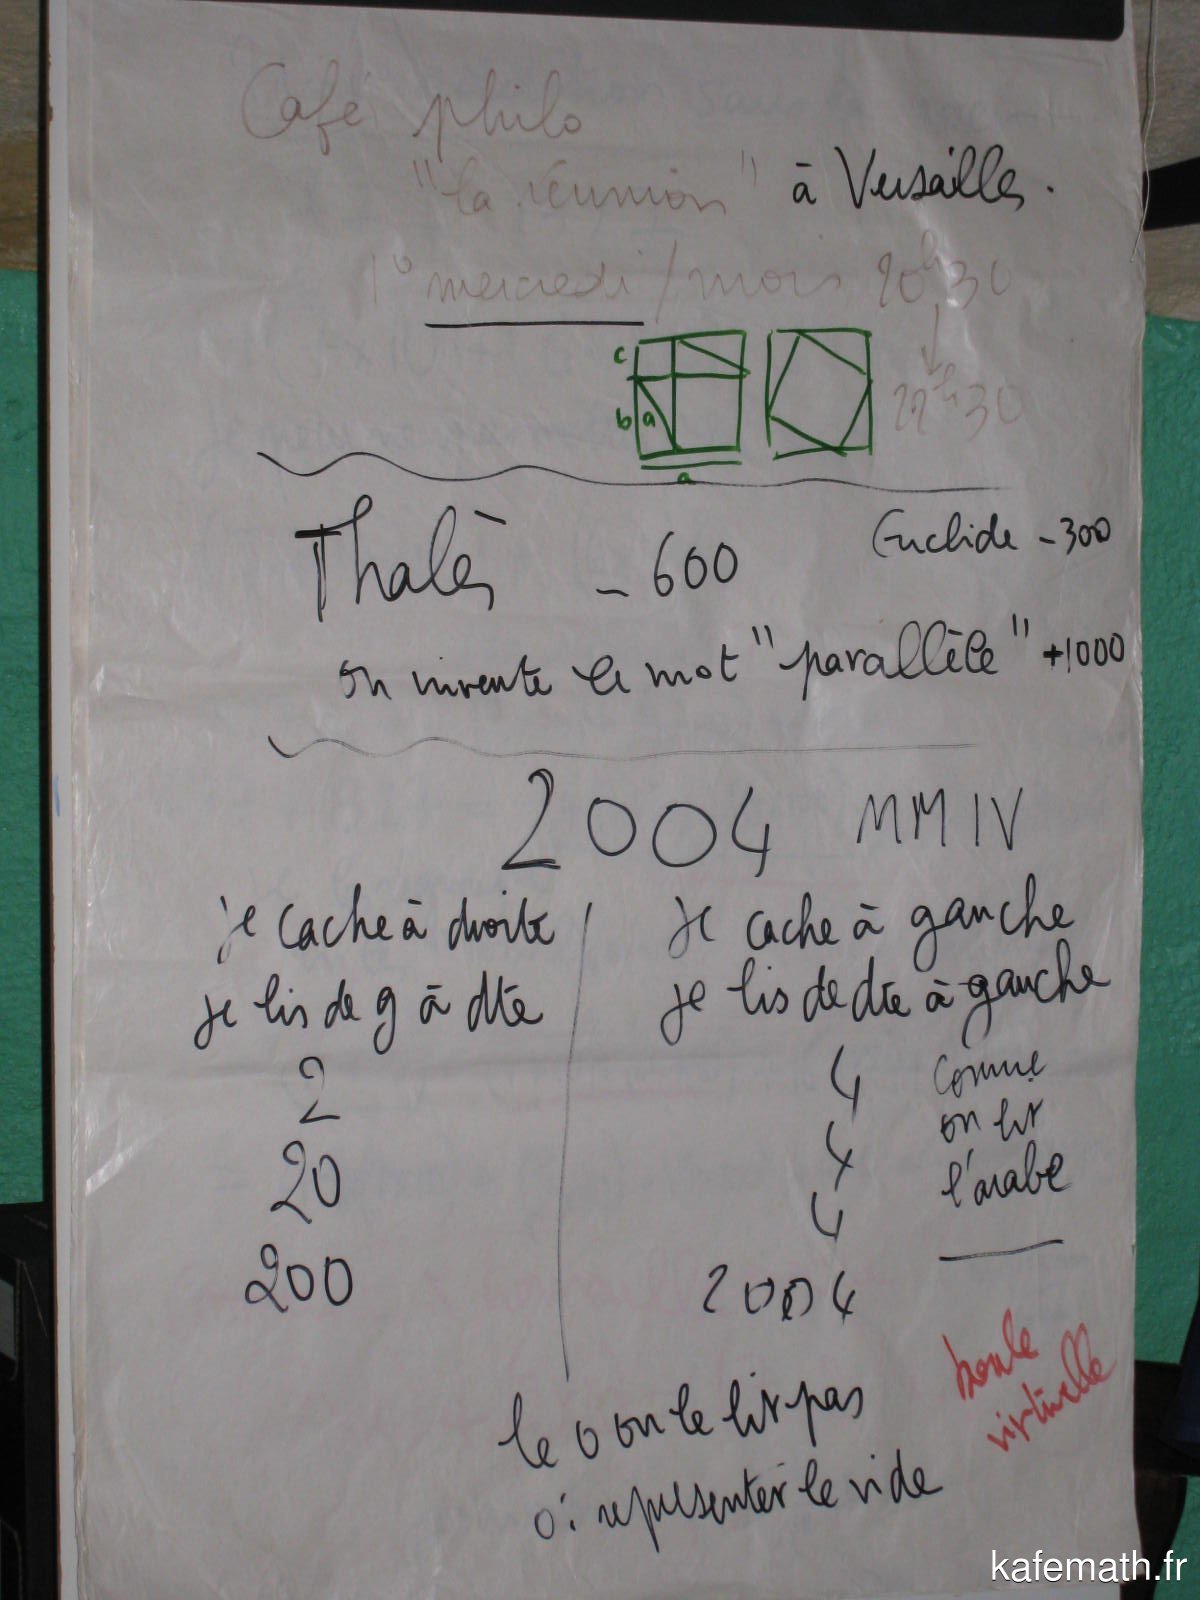 Café philo
"la réunion" à Versailles.
1° mercredi / mois 20h30
22h30
c
b a
a
Thalès - 600
Euclide - 300
on invente le mot "parallèle" +1000
2004 MMIV
je cache à droite
je lis de g à dte
2
20
200
je cache à gauche
je lis de dte à gauche
4
4
4
2004
comme
on lit
l'arabe
boule
virtuelle
le 0 on le lit pas
0 : représenter le vide
kafemath.fr